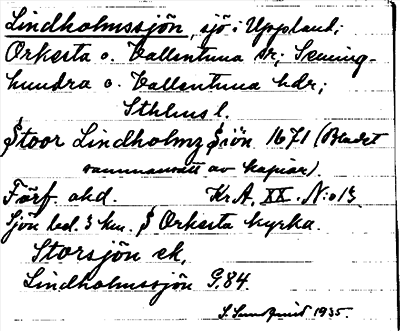 Lindholmssjön, sjö i Uppland;
Orkesta o. Vallentuna sr; Seming-
hundra o. Vallentuna hdr;
Sthlms l.
Stoor Lindholmz Siön 1671 (Bladet
sammansatt av kopior).
Förf. okd. Kr.A. XX. N:o 13.
Sjön bel. 3 km. S Orkesta kyrka.
Storsjön ek,
Lindholmssjön G,84.
S. Sundquist 1935.